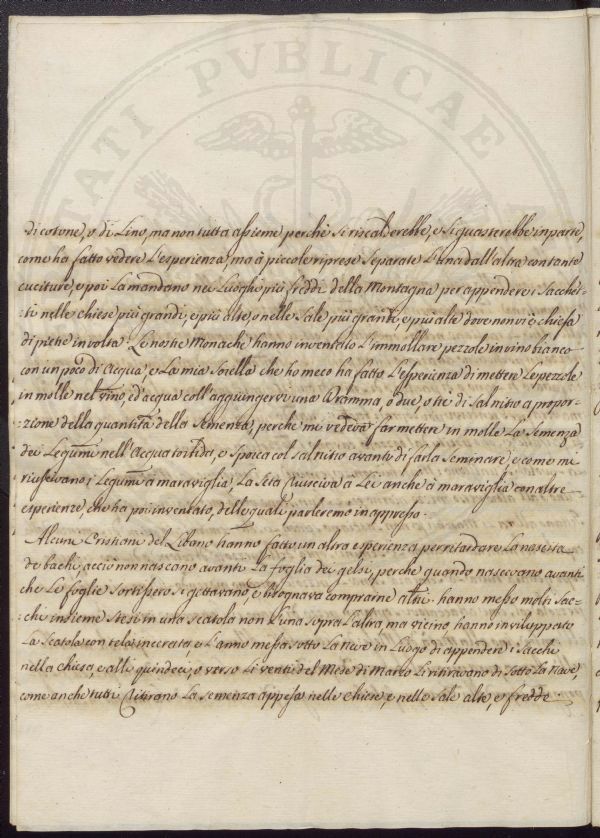 di cotone, o di Lino, ma non tutta assieme perche si riscalderebbe, e si guasterebbe in parte,
come ha fatto vedere L'esperienza, ma à piccole riprese separate L'una dall'altra con tante
cuciture, e poi La mandano nei Luoghi più freddi della Montagna per appendere i Sacchet-
ti nelle chiese più grandi, e più alte, o nelle Sale più grandi, e più alte dove non vi è chiesa
di pietre in volta. Le nostre Monache hanno inventato L'immollare pezzole in vino bianco
con un poco di Acqua, e La mia Sorella che ho meco ha fatto L'esperienza di mettere Le pezzole
in molle nel vino, ed acqua coll'aggiungervi una Dramma, o due, o tre di Salnitro a propor-
zione della quantità della Semenza, perche mi vedeva far mettere in molle La Semenza
dei Legumi nell'Acqua col salnitro avanti di farla Seminare, e come mi
riuscivano i Legumi a maraviglia, La Seta riusciva à Lei anche à maraviglia con altre
esperienze, che ha poi inventato, delle quali parleremo in appresso.
Alcuni Cristiani del Libano hanno fatto un altra esperienza per ritardare La nascita
de bachi, acciò non nascano avanti La foglia dei gelsi, perche quando nascevano avanti
che Le foglie sortissero si gettavano, e bisognava comprarne altri. hanno messo molti Sac-
chi insieme stesi in una scatola non L'una sopra L'altra, ma vicino hanno inviluppato
La Scatola con tela incerata, e L'anno messa sotto La neve in Luogo di appendere i Sacchi
nella chiesa, e alli quindeci, o verso Li venti del Mese di Marzo Li ritiravano di sotto La neve,
come anche tutti ritirano La semenza appesa nelle chiese, e nelle Sale alte, e fredde.
PVBLICAE